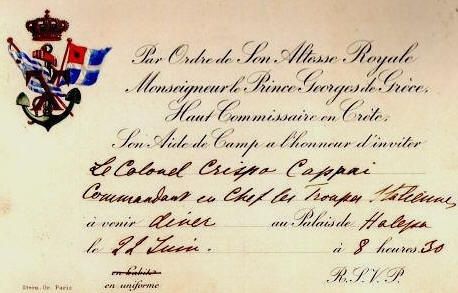 Par Ordre de Son Altesse Royale
Monseigneur le Prince Georges de Grèce,
Haut Commissaire en Crète,
Son Aide de Camp a l'honneur d'inviter
Le Colonel Crispo Cappai
Commandant en Chef les Troupes Italiennes
à venir dîner au Palais de Halepa
le 22 Juin. à 8 heures 30
en habit
en uniforme
R.S.V.P.
Stern. Gr. Paris